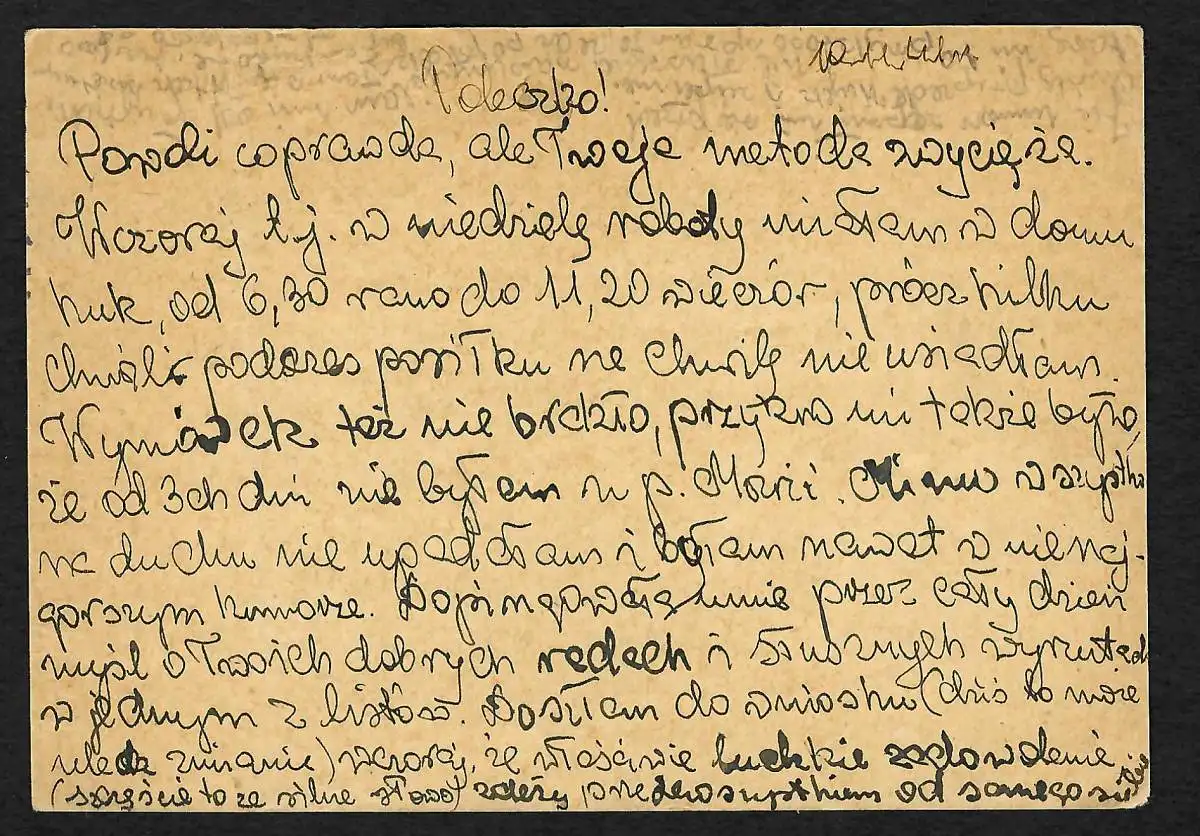 Powoli coprawda, ale Twoja metoda zwycięża.
Wczoraj t.j. w niedzielę roboty miałam w domu
huk, od 6,30 rano do 11,20 wieczór, prócz kilku
chwil podczas posiłku na chwilę nie usiadłam.
Wymówek też nie brakło, przykro mi także było,
że od 3ch dni nie byłam u p. Marii. Mimo wszystko
na duchu nie upadłam i byłam nawet w nienaj-
gorszym humorze. Dopingowała mnie przez cały dzień
myśl o Twoich dobrych radach i słusznych wyrzutach
w jednym z listów. Doszłam do wniosku (dziś to może
ulec zmianie) wczoraj, że właściwie ludzkie zadowolenie
(szczęście to za silne słowo) zależy przedewszystkiem od samego siebie